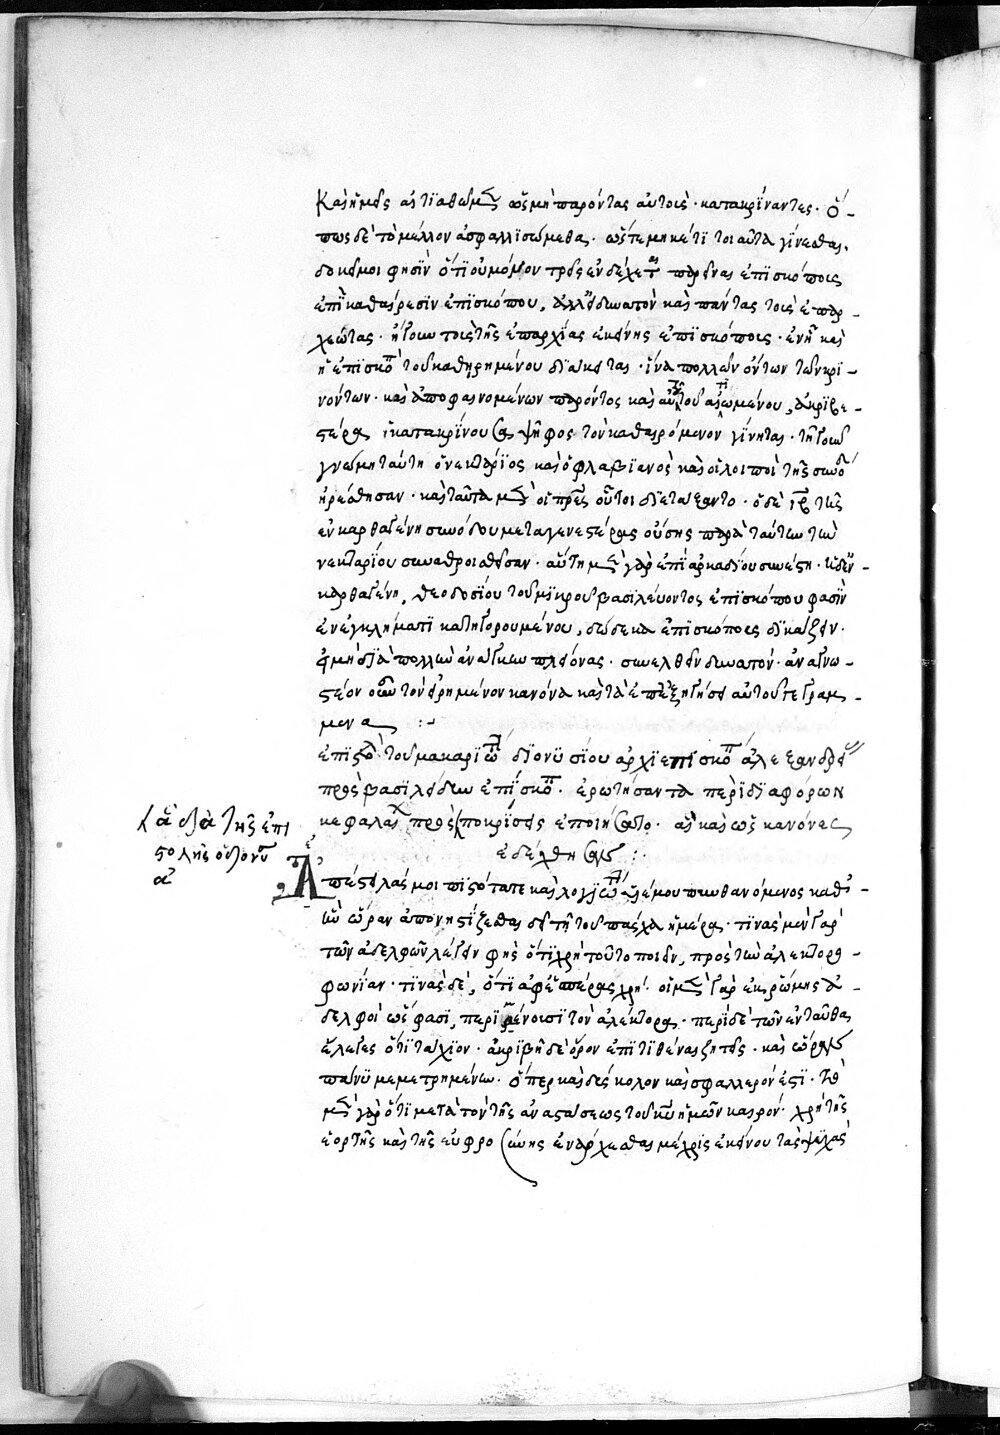 καὶ ἡμεῖς αἰτιαθῶμεν ὡς μὴ παρόντας αὐτοὺς κατακρίναντες. ὅ-
πως δὲ τὸ μέλλον ἀσφαλισώμεθα. ὥστε μηκέτι τοιαῦτα γίνεσθαι.
δοκεῖ μοι φησὶν ὅτι οὐ μόνον τρεῖς ἐνδέχεται παρεῖναι ἐπισκόπους
ἐπὶ καθαίρεσιν ἐπισκόπου, ἀλλ' εἰ δυνατὸν καὶ πάντας τοὺς ἐπαρ-
χεώτας. ἤγουν τοὺς τῆς ἐπαρχίας ἐκείνης ἐπισκόπους. ἐν ᾗ καὶ
ἡ ἐπισκοπὴ τοῦ καθηρημένου διάκειται. ἵνα πολλῶν ὄντων τῶν κρι-
νόντων. καὶ ἀποφαινομένων παρόντος καὶ αὐτοῦ τοῦ αἰτιωμένου, ἀκριβε-
στέρα ἡ κατακρίνουσα ψῆφος τὸν καθαιρόμενον γίνηται. τῇ γοῦν
γνώμῃ ταύτῃ ὁ νεκτάριος καὶ ὁ φλαβιανὸς καὶ οἱ λοιποὶ τῆς συνόδου
ἠρέσθησαν. καὶ ταῦτα μὲν οἱ πατέρες οὗτοι διετάξαντο. ὁ δὲ τῆς
ἐν καρθαγένῃ συνόδου μεταγενεστέρας οὔσης παρὰ ταύτην τὴν
νεκταρίου συναθροισθεῖσαν. αὕτη μὲν γὰρ ἐπὶ ἀρκαδίου συνέστη. ἡ δὲ ἐν
καρθαγένῃ, θεοδοσίου τοῦ μικροῦ βασιλεύοντος ἐπισκόπου φασὶν
ἐν ἐγκλήματι κατηγορουμένου, δώδεκα ἐπισκόπους δικάζειν.
εἰ μὴ διὰ πολλὴν ἀνάγκην πλείονας. συνελθεῖν δυνατόν. ἀναγνω-
στέον οὖν τὸν εἰρημένον κανόνα καὶ τὰ ἐπεξηγήσει αὐτοῦ γεγραμ-
μένα :-
ἐπιστολὴ τοῦ μακαρίου διονυσίου ἀρχιεπισκόπου ἀλεξανδρείας
πρὸς βασιλείδην ἐπίσκοπον. ἐρωτήσαντα περὶ διαφόρων
κεφαλαίων πρὸς ἃς ἀποκρίσεις ἐποιήσατο. ἃς καὶ ὡς κανόνας
ἐδέχθησαν :.
ἐκ τῆς ἐπι
στολῆς διονυ
α
Ἀπέστειλάς μοι πιστότατε καὶ λογιώτατε υἱέ μου πυνθανόμενος καθ'
ἣν ὥραν ἀπονηστίζεσθαι δεῖ τῇ τοῦ πάσχα ἡμέρᾳ. τινὰς μὲν γὰρ
τῶν ἀδελφῶν λέγειν φῂς ὅτι χρὴ τοῦτο ποιεῖν, πρὸς τὴν ἀλεκτορο-
φωνίαν. τινὰς δέ, ὅτι ἀφ' ἑσπέρας χρή. οἱ μὲν γὰρ ἐν ῥώμῃ ἀ-
δελφοὶ ὥς φασι, περιμένουσι τὸν ἀλέκτορα. περὶ δὲ τῶν ἐνταῦθα
ἔλεγες ὅτι τάχιον. ἀκριβῆ δὲ ὅρον ἐπιτιθέναι ζητεῖς. καὶ ὥραν
πάνυ μεμετρημένην. ὅπερ καὶ δύσκολον καὶ σφαλερόν ἐστι. τὸ
μὲν γὰρ ὅτι μετὰ τὸν τῆς ἀναστάσεως τοῦ κυ ἡμῶν καιρόν. χρὴ τῆς
ἑορτῆς καὶ τῆς εὐφροσύνης ἐνάρχεσθαι μέχρις ἐκείνου τὰς ψυχὰς